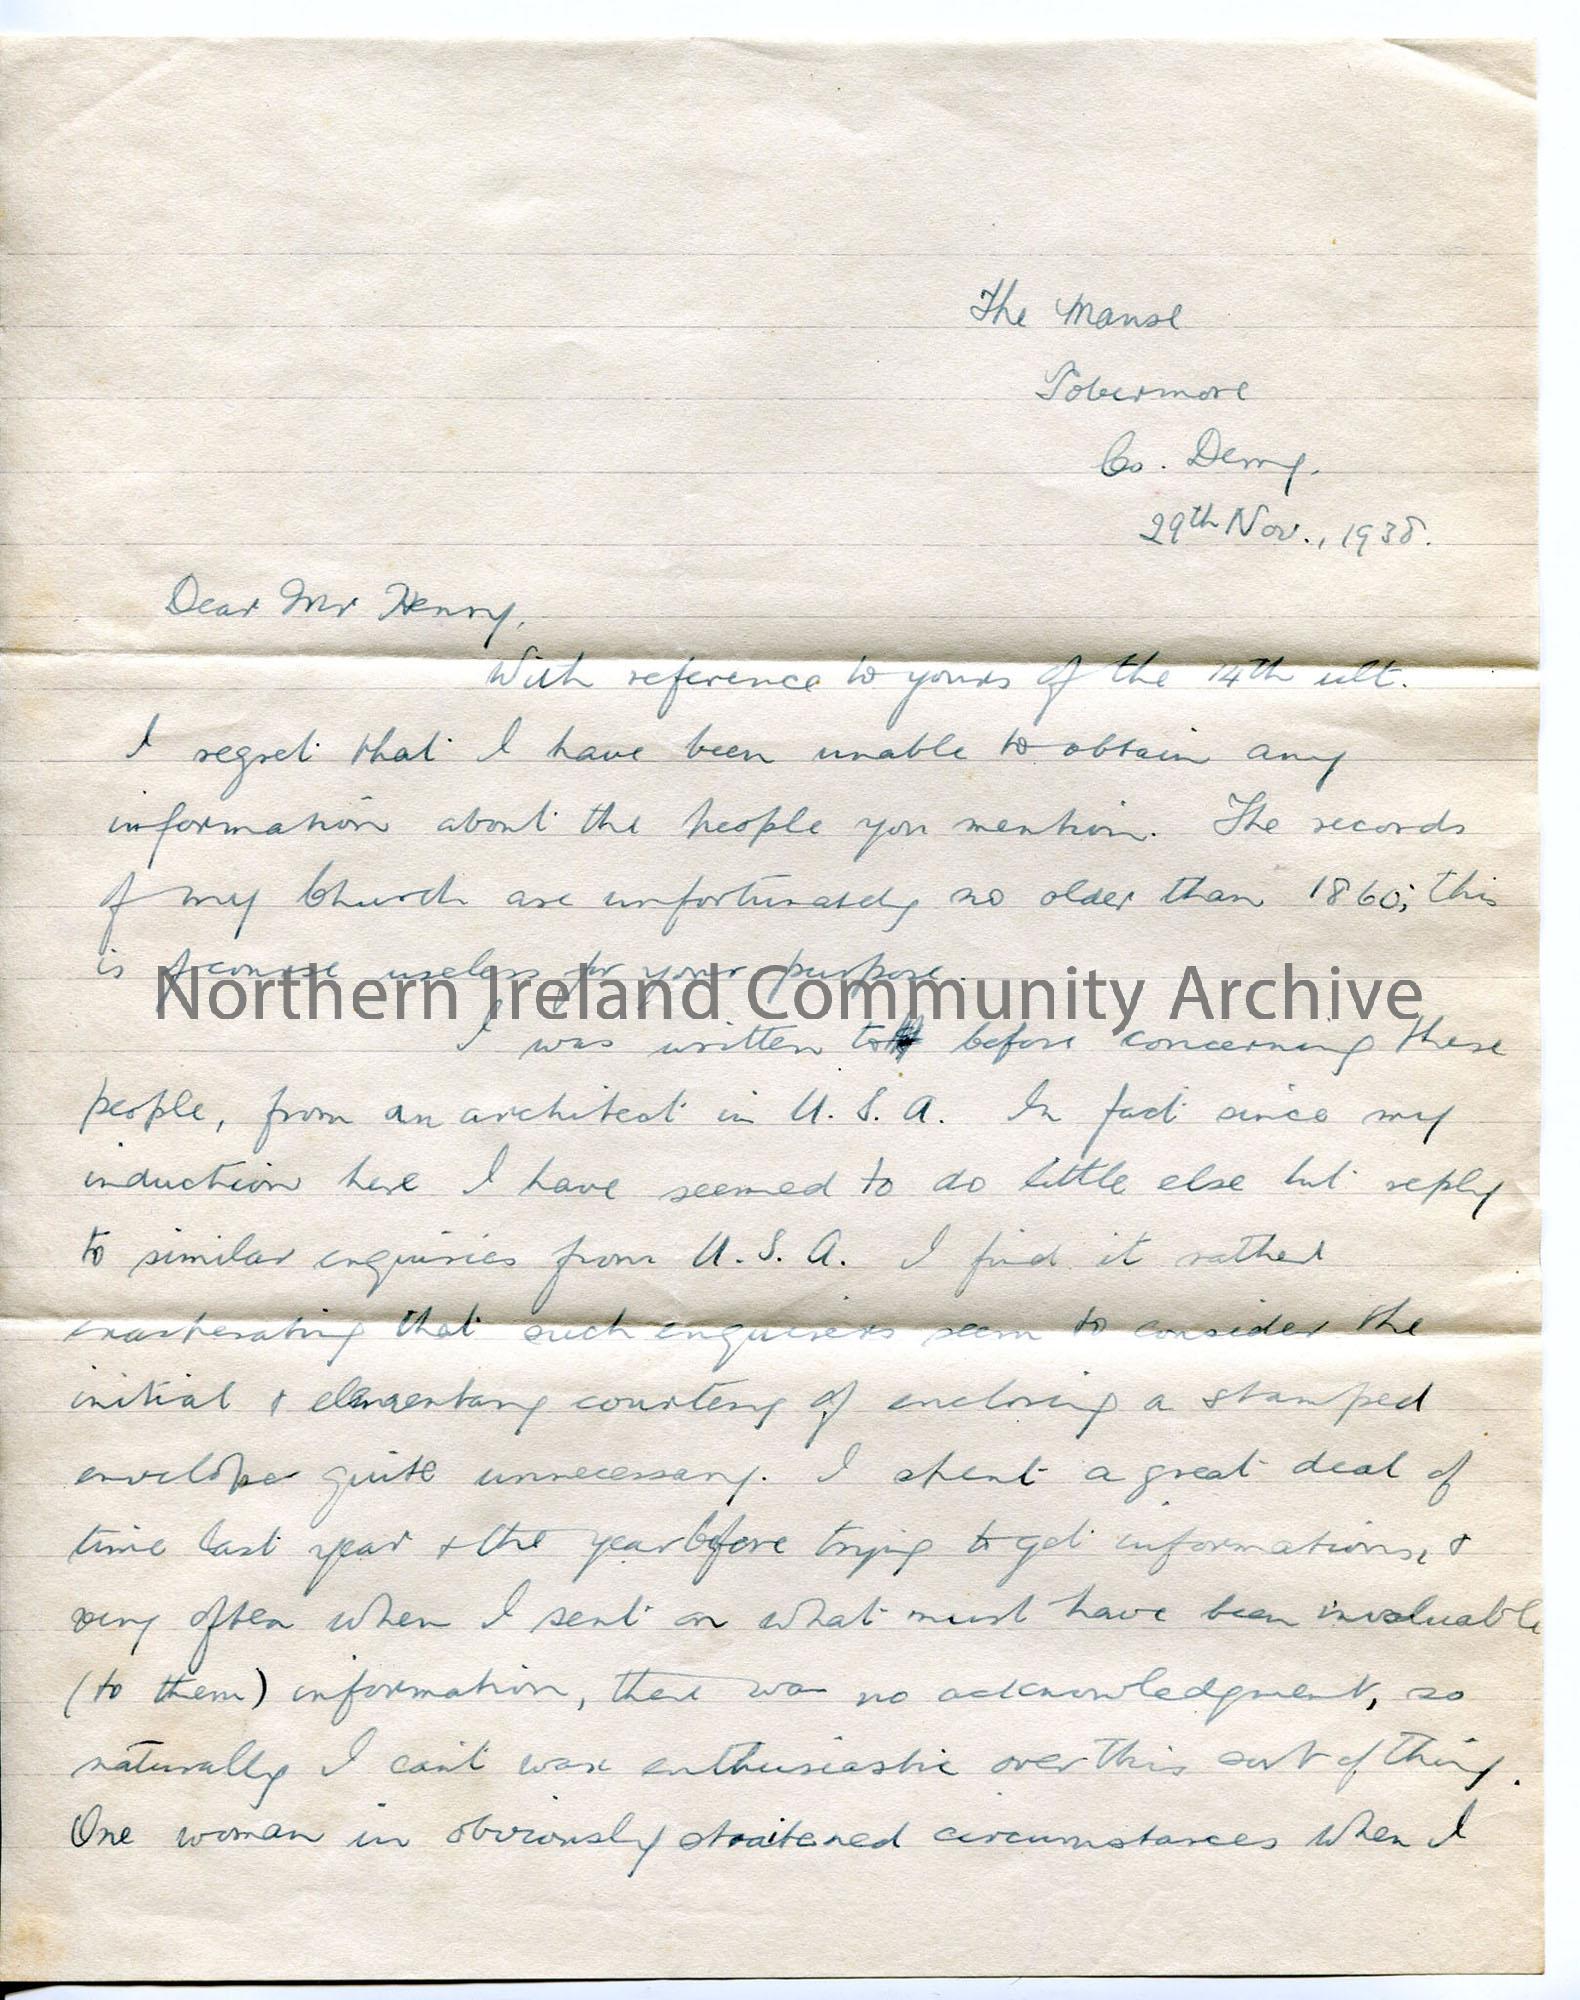 The Manse
Tobermore
Co. Derry.
29th Nov., 1938.
Dear Mr Henry,
With reference to yours of the 14th ult.
I regret that I have been unable to obtain any
information about the people you mention. The records
of my Church are unfortunately no older than 1860; this
is of course useless for your purpose.
Northern Ireland Community Archive
I was written to before concerning these
people, from an architect in U.S.A. In fact since my
induction here I have seemed to do little else but reply
to similar enquiries from U.S.A. I find it rather
exasperating that such enquirers seem to consider the
initial & elementary courtesy of enclosing a stamped
envelope quite unnecessary. I spent a great deal of
time last year & the year before trying to get informations, &
very often when I sent on what must have been invaluable
(to them) information, there was no acknowledgment, so
naturally I can't wax enthusiastic over this sort of thing.
One woman in obviously straitened circumstances when I